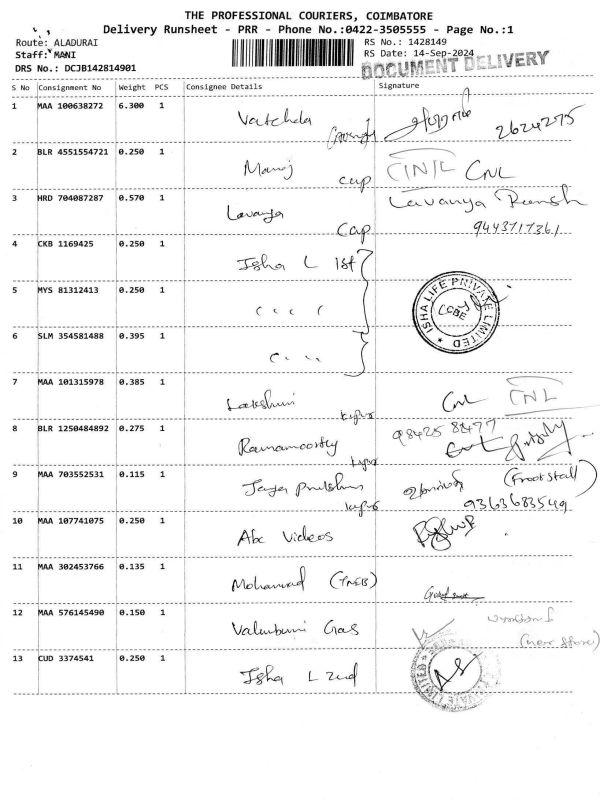 THE PROFESSIONAL COURIERS, COIMBATORE
Delivery Runsheet - PRR - Phone No.:0422-3505555 - Page No.:1
Route: ALADURAI
RS No.: 1428149
Staff: MANI
RS Date: 14-Sep-2024
DRS No.: DCJB142814901
DOCUMENT DELIVERY
S No Consignment No Weight PCS Consignee Details Signature
1 MAA 100638272 6.300 1 Vatchala
2624275
2 BLR 4551554721 0.250 1 Manoj CNL
cup
3 HRD 704087287 0.570 1 Lavanya Lavanya
Cap 9443717361
4 CKB 1169425 0.250 1 Isha L 1st
5 MYS 81312413 0.250 1 " "
ISHA LIFE PRIVATE LIMITED
CBE
6 SLM 354581488 0.395 1 " "
7 MAA 101315978 0.385 1 Lakshmi CNL CNL
8 BLR 1250484892 0.275 1 Ramamoorthy 98425 8477
9 MAA 703552531 0.115 1 Jaya (Froot stall)
9363683549
10 MAA 107741075 0.250 1 Abc Videos
11 MAA 302453766 0.135 1 Mohammad (TNEB)
12 MAA 576145490 0.150 1 Gas
(near Store)
13 CUD 3374541 0.250 1 Isha L 2nd
PRIVATE LIMITED